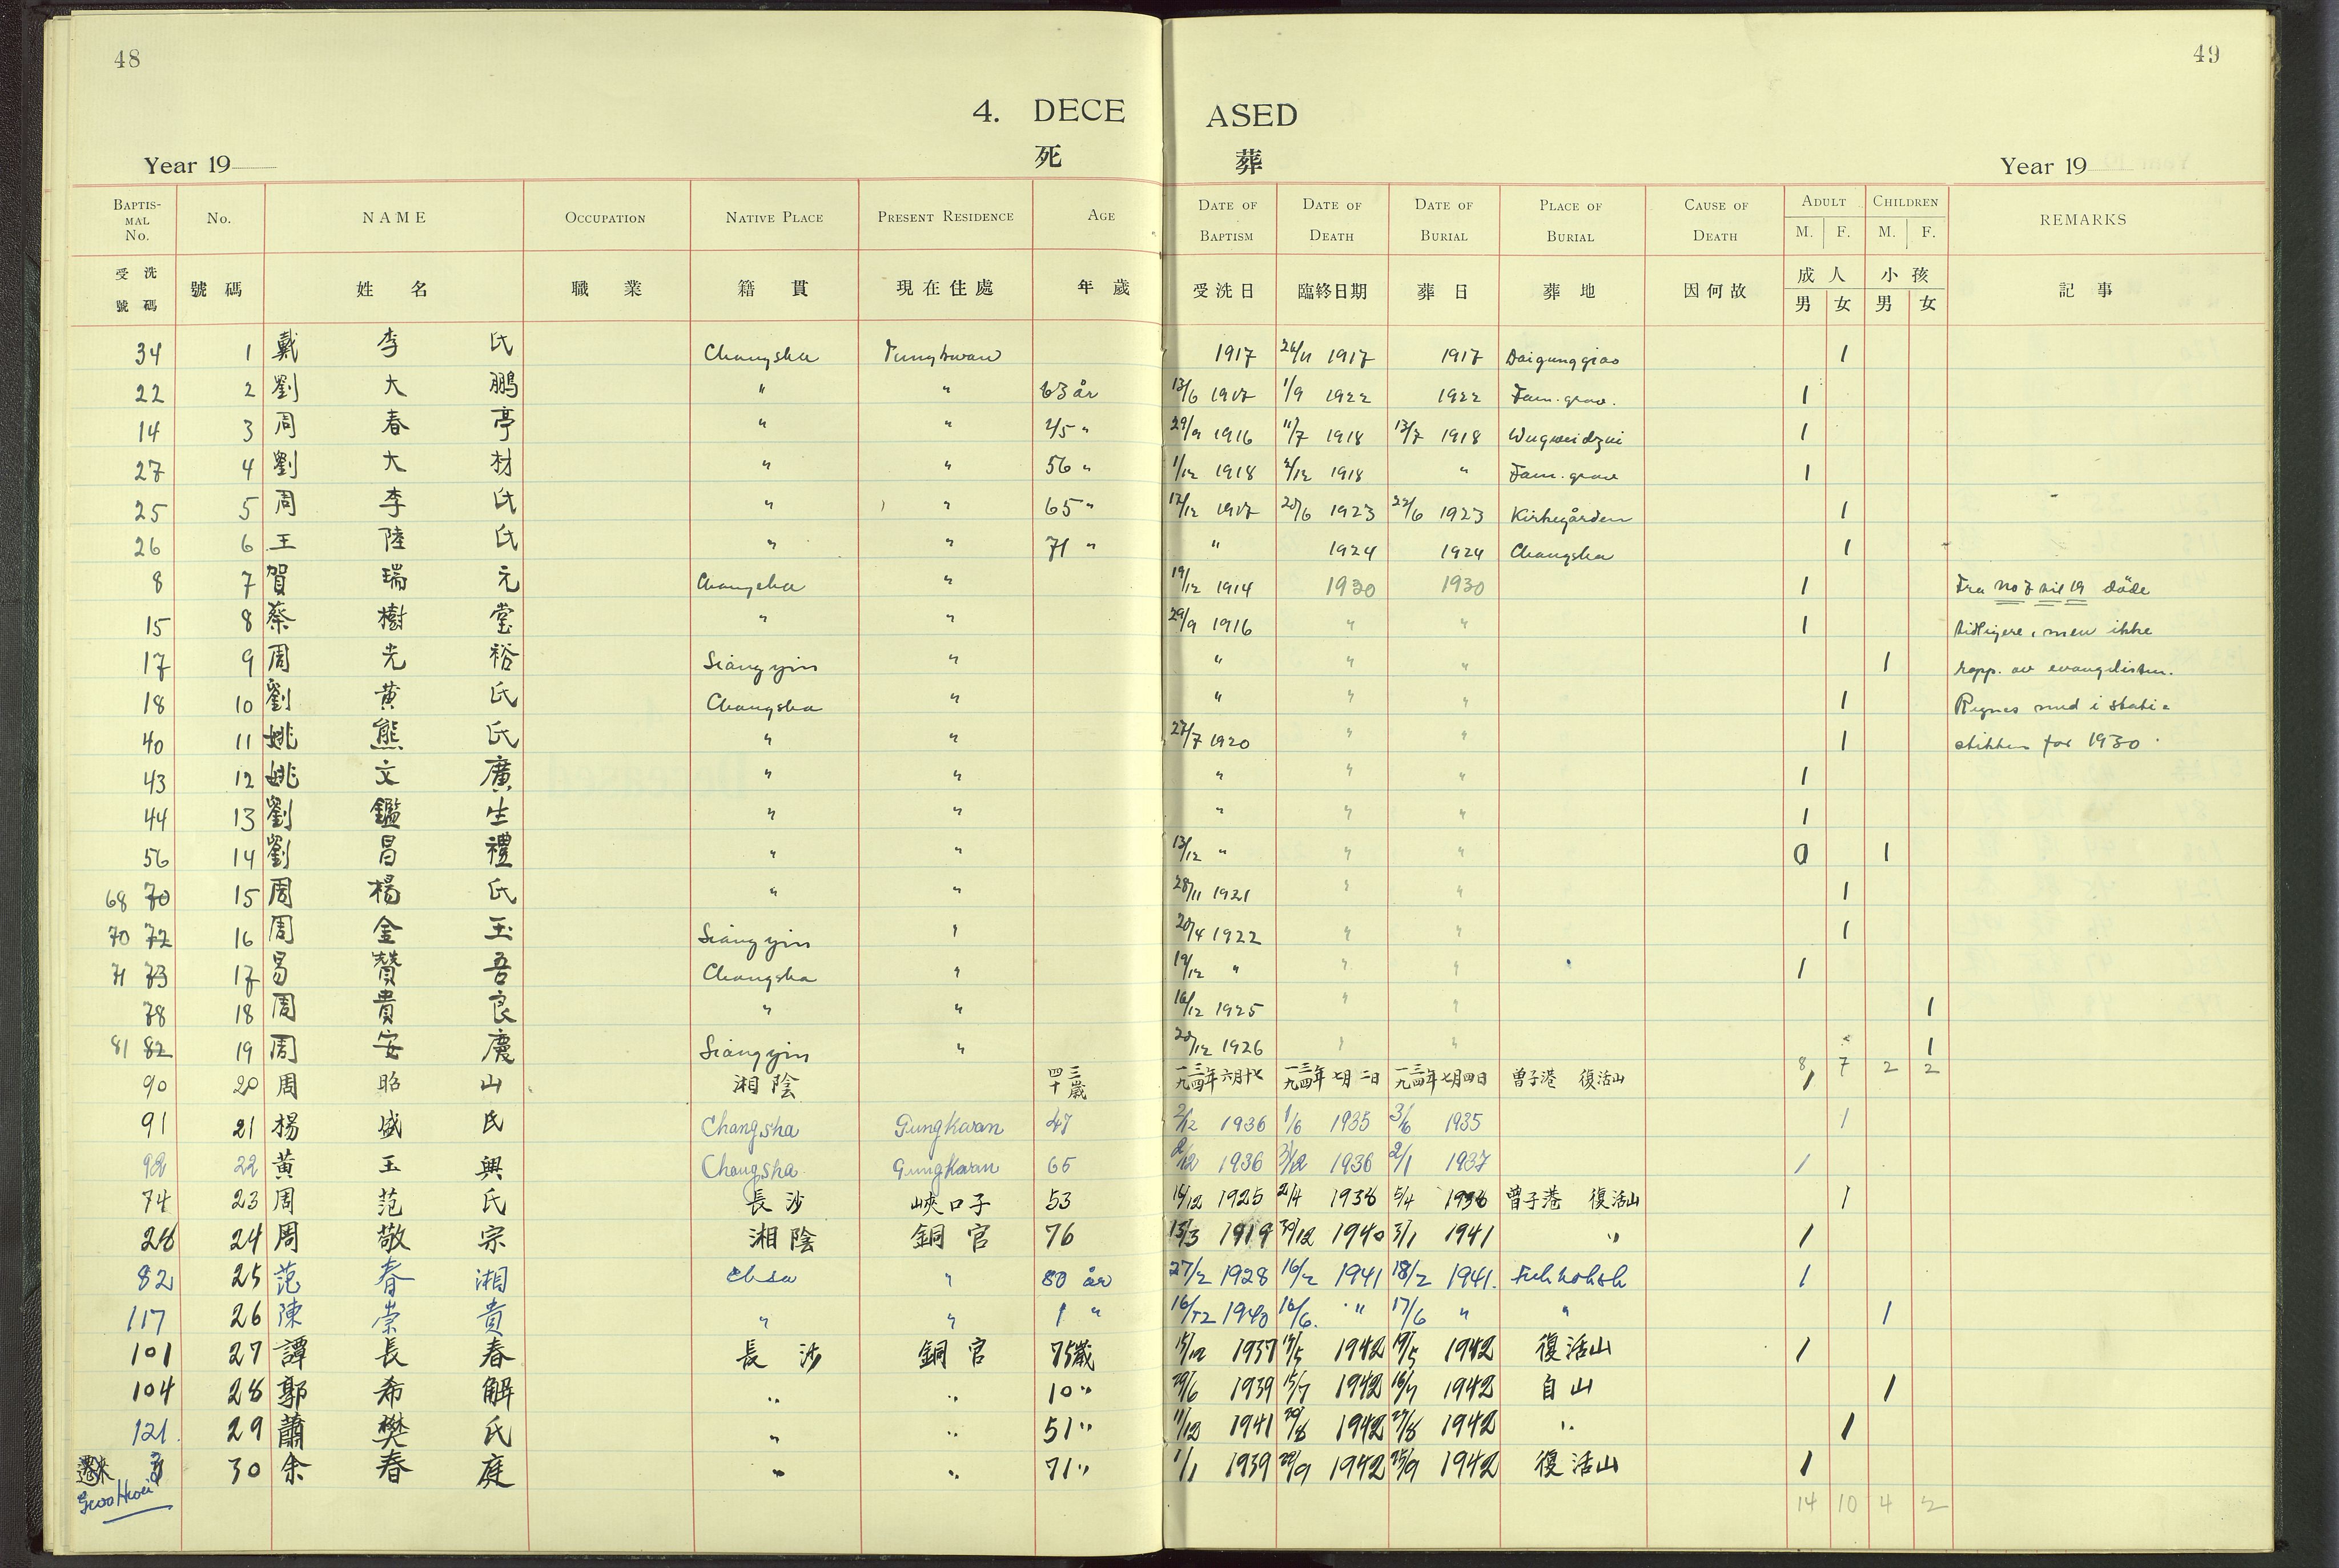 48
49
4. DECEASED
死 葬
Year 19
Year 19
BAPTISMAL No. No. NAME OCCUPATION NATIVE PLACE PRESENT RESIDENCE AGE DATE OF BAPTISM DATE OF DEATH DATE OF BURIAL PLACE OF BURIAL CAUSE OF DEATH ADULT M. F. CHILDREN M. F. REMARKS
受洗號碼 號碼 姓名 職業 籍貫 現在住處 年歲 受洗日 臨終日期 葬日 葬地 因何故 成人 男 女 小孩 男 女 記事
34 1 戴李氏 Changsha Tungkwan 1917 26/11 1917 1917 Daigunggiao 1
22 2 劉大鵬 " " 63 år 13/6 1917 1/9 1922 1922 Fam. grav. 1
14 3 周春亭 " " 45 " 29/9 1916 11/7 1918 13/7 1918 Wugweidzui 1
27 4 劉大材 " " 56 " 1/12 1918 2/12 1918 " Fam. grav 1
25 5 周李氏 " " 65 " 17/12 1917 20/6 1923 22/6 1923 Kirkegården 1
26 6 王陸氏 " " 71 " " 1924 1924 Changsha 1
8 7 賀瑞元 Changsha " 19/12 1914 1930 1930 1 Fra No 7 til 19 döde
15 8 蔡樹堂 " " 29/9 1916 " " 1 tidligere, men ikke
17 9 周光裕 Siangyin " " " " 1 rapp. av evangelisten.
18 10 劉黃氏 Changsha " " " " 1 Regnes med i stati=
40 11 姚熊氏 " " 27/7 1920 " " 1 stikken for 1930.
43 12 姚文廣 " " " " " 1
44 13 劉鑑生 " " " " " 1
56 14 劉昌禮 " " 13/12 " " " 0 1
68 70 15 周楊氏 " " 28/11 1921 " " 1
70 72 16 周金玉 Siangyin " 20/4 1922 " " 1
71 73 17 易贊吾 Changsha " 19/12 " " " 1
78 18 周貴良 " " 16/12 1925 " " 1
81 82 19 周安慶 Siangyin " 20/12 1926 " " 1
8 7 2 2
90 20 周昭山 湘陰 四十三歲 一九三四年六月十七 一九三四年七月二日 一九三四年七月四日 曾子港 復活山 1
91 21 楊盛氏 Changsha Gungkwan 47 2/12 1936 1/6 1935 3/6 1935 1
92 22 黃玉興 Changsha Gungkwan 65 2/12 1936 31/12 1936 2/1 1937 1
74 23 周范氏 長沙 峽口子 53 16/12 1925 2/4 1938 5/4 1938 曾子港 復活山 1
28 24 周敬宗 湘陰 銅官 76 13/3 1919 30/12 1940 3/1 1941 " 1
82 25 范春湘 Chsa " 80 år 27/2 1928 16/2 1941 18/2 1941. Fuhhohsh 1
117 26 陳崇貴 " " 1 " 16/12 1940 16/6. " 17/6 " " 1
101 27 譚長春 長沙 銅官 75歲 15/12 1937 17/5 1942 19/5 1942 復活山 1
104 28 郭希解 " " 10 " 29/6 1939 15/7 1942 16/7 1942 自山 1
121. 29 蕭樊氏 " " 51 " 11/12 1941 20/8 1942 27/8 1942 " 1
30 余春庭 " " 71 " 1/1 1939 22/9 1942 25/9 1942 復活山 1
14 10 4 2